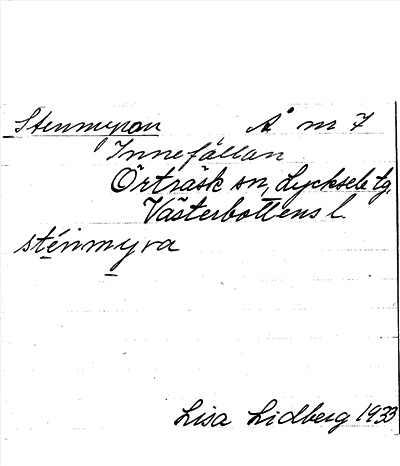 Stenmyran Å nr 7
Innefällan
Örträsk sn, Lycksele tg.
Västerbottens l.
sténmyra
Lisa Lidberg 1933